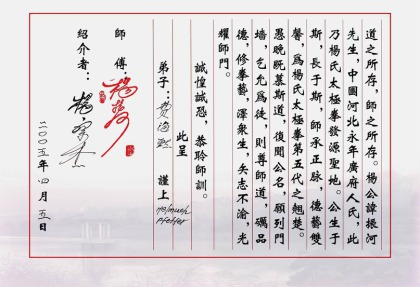 道之所存，師之所存。楊公諱振河
先生，中國河北永年廣府人氏，此
乃楊氏太極拳發源聖地。公生于
斯，長于斯，師承正脉，德藝雙
馨，爲楊氏太極拳第五代之翹楚。
愚晚既慕斯道，復聞公名，願列門
墻，乞允爲徒，則尊師道，礪品
德，修拳藝，澤衆生，矢志不渝，光
耀師門。
誠惶誠恐，恭聆師訓。
此呈
弟子： 謹上
Pfeffer
師傅：楊
紹介者：楊
二〇〇五年四月五日